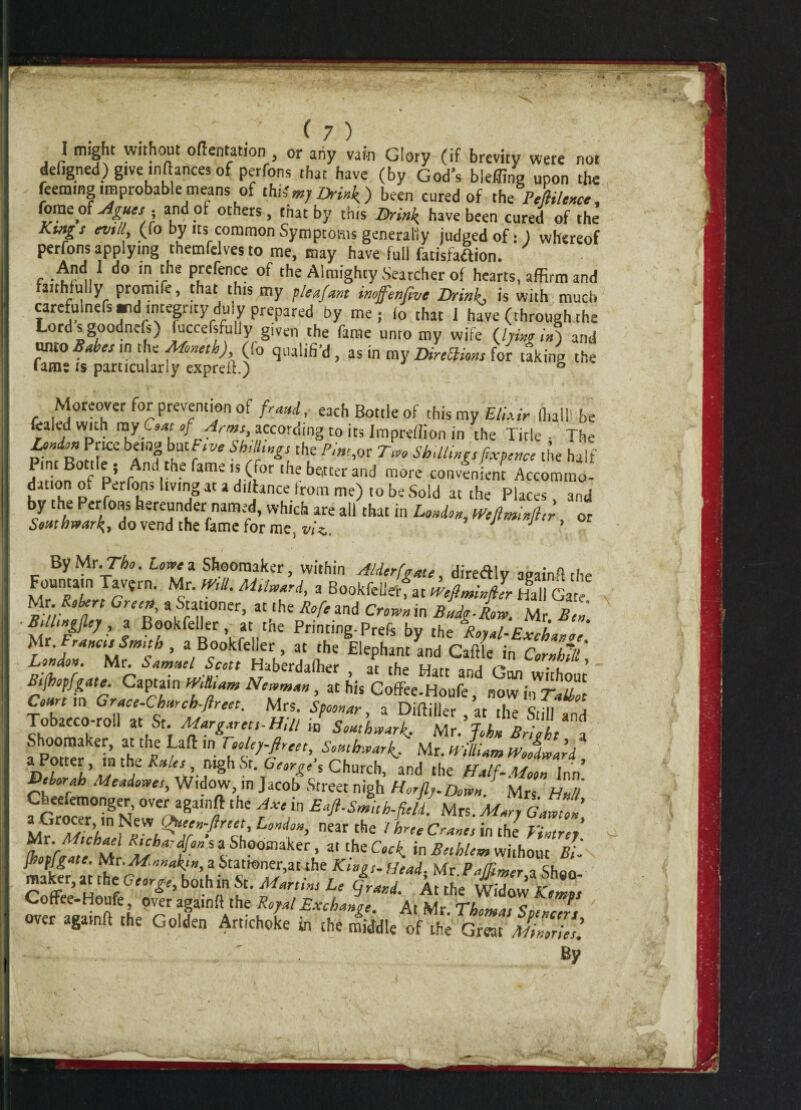 ( 7 )
I might without oſtentation, or any vain Glory (if brevity were not
deſigned) give inſtances of perſons that have (by God's bleſſing upon the
ſeeming improbable means of this my Drink) been cured of the Peſtilence,
ſome of Agues; and of others, that by this Drink have been cured of the
King's evill, (ſo by its common Symptoms generally judged of:) whereof
perſons applying themſelves to me, may have full ſatisfaction.
And I do in the preſence of the Almighty Searcher of hearts, affirm and
faithfully promiſe, that this my pleaſant inoffenſive Drink, is with much
carefulneſs and integrity duly prepared by me; ſo that I have (through the
Lord's goodneſs) ſucceſsfully given the ſame unto my wife (lying in) and
unto Babes in the Moneth), (ſo qualifi'd, as in my Directions for taking the
ſame is particularly expreſt.)
Moreover for prevention of fraud, each Bottle of this my Elixir ſhall be
ſealed with my Coat of Arms, according to its Impreſſion in the Title, The
London Price being but Five Shillings the Pint, or Two Shillings ſixpence the half
Pint Bottle; And the ſame is (for the better and more convenient Accommo-
dation of Perſons living at a diſtance from me) to be Sold at the Places, and
by the Perſons hereunder named, which are all that in London, Weſtminſter, or
Southwark, do vend the ſame for me, viz.
By Mr. Tho. Lowe a Shoomaker, within Alderſgate, directly againſt the
Fountain Tavern. Mr. Will. Milward, a Bookſeller, at Weſtminſter Hall Gate.
Mr. Robert Green, a Stationer, at the Roſe and Crown in Budg-Row. Mr. Ben.
Billingſley, a Bookſeller, at the Printing-Preſs by the Royal-Exchange.
Mr. Francis Smith, a Bookſeller, at the Elephant and Caſtle in Cornhill,
London. Mr. Samuel Scott Haberdaſher, at the Hart and Gun without
Biſhopſgate. Captain William Newman, at his Coffee-Houſe, now in Talbot
Court in Grace-Church-ſtreet. Mrs. Spoonar, a Diſtiller, at the Still and
Tobacco-roll at St. Margarets-Hill in Southwark. Mr. John Bright, a
Shoomaker, at the Laſt in Tooley-ſtreet, Southwark. Mr. William Woodward,
a Potter, in the Rules, nigh St. George's Church, and the Half-Moon Inn.
Deborah Meadowes, Widow, in Jacob Street nigh Horſly-Down. Mrs. Hull,
Cheeſemonger, over againſt the Axe in Eaſt-Smith-field. Mrs. Mary Gawton,
a Grocer, in New Queen-ſtreet, London, near the Three Cranes in the Vintrey.
Mr. Michael Richardſon's a Shoomaker, at the Cock in Bethlem without Bi-
ſhopſgate. Mr. Mannakin, a Stationer, at the Kings-Head. Mr. Paſſimer, a Shoo-
maker, at the George, both in St. Martins Le Grand. At the Widow Kemps
Coffee-Houſe, over againſt the Royal Exchange. At Mr. Thomas Spencers,
over againſt the Golden Artichoke in the middle of the Great Minories.
By